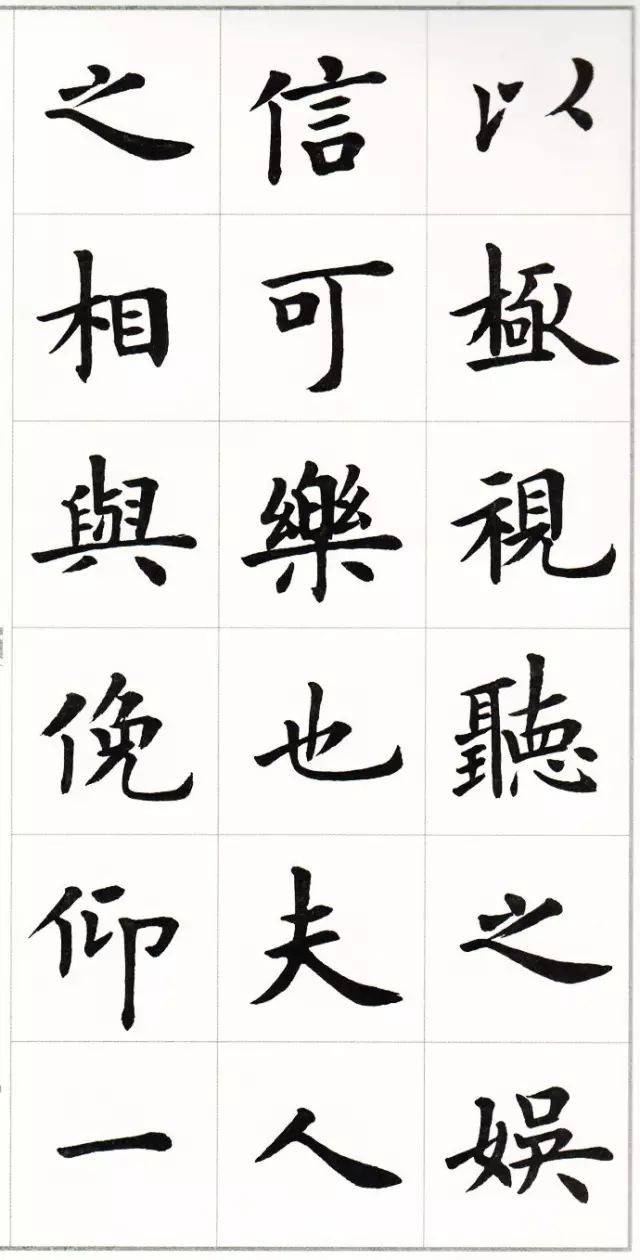 以極視聽之娛
信可樂也夫人
之相與俛仰一